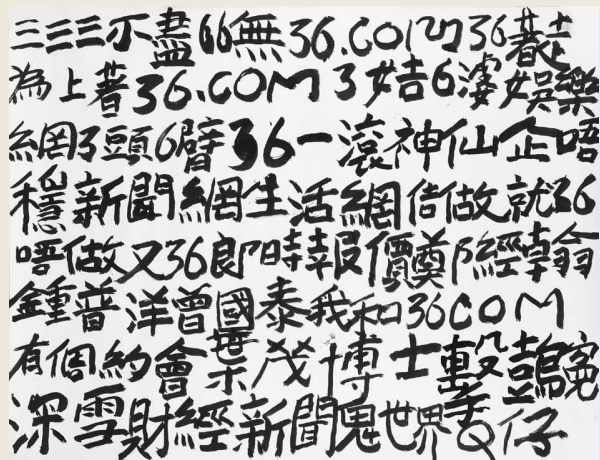 三三三不盡66無36.COM36
為上著36.COM3姑6婆娛樂
網3頭6臂36一滾神仙企唔
穩新聞網生活網信做就36
唔做又36郎時報價奠經韓翁
鍾普洋曾國泰我和36COM
有個約會葉茂博士
深雪財經新聞鬼世界仔